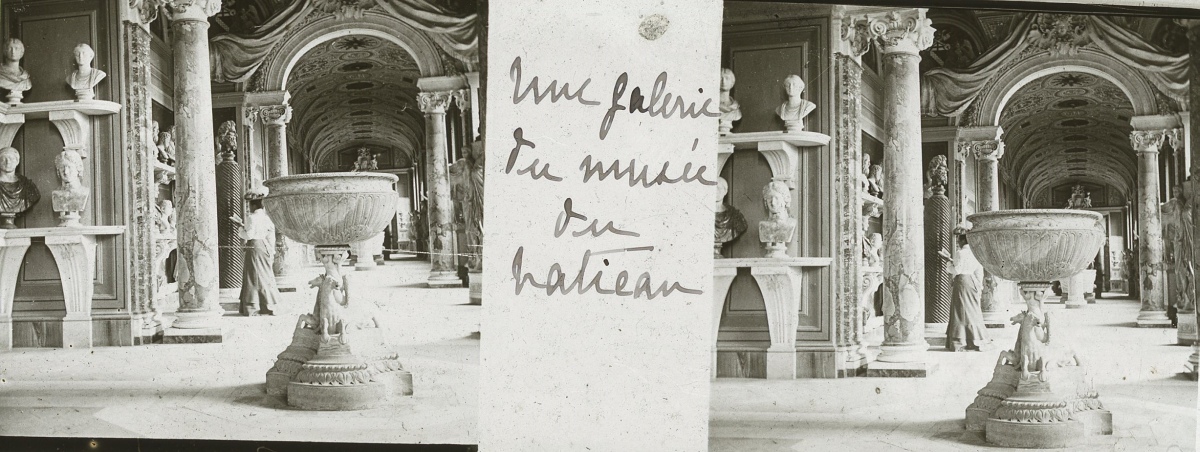 Une galerie
du musée
du
Vatican